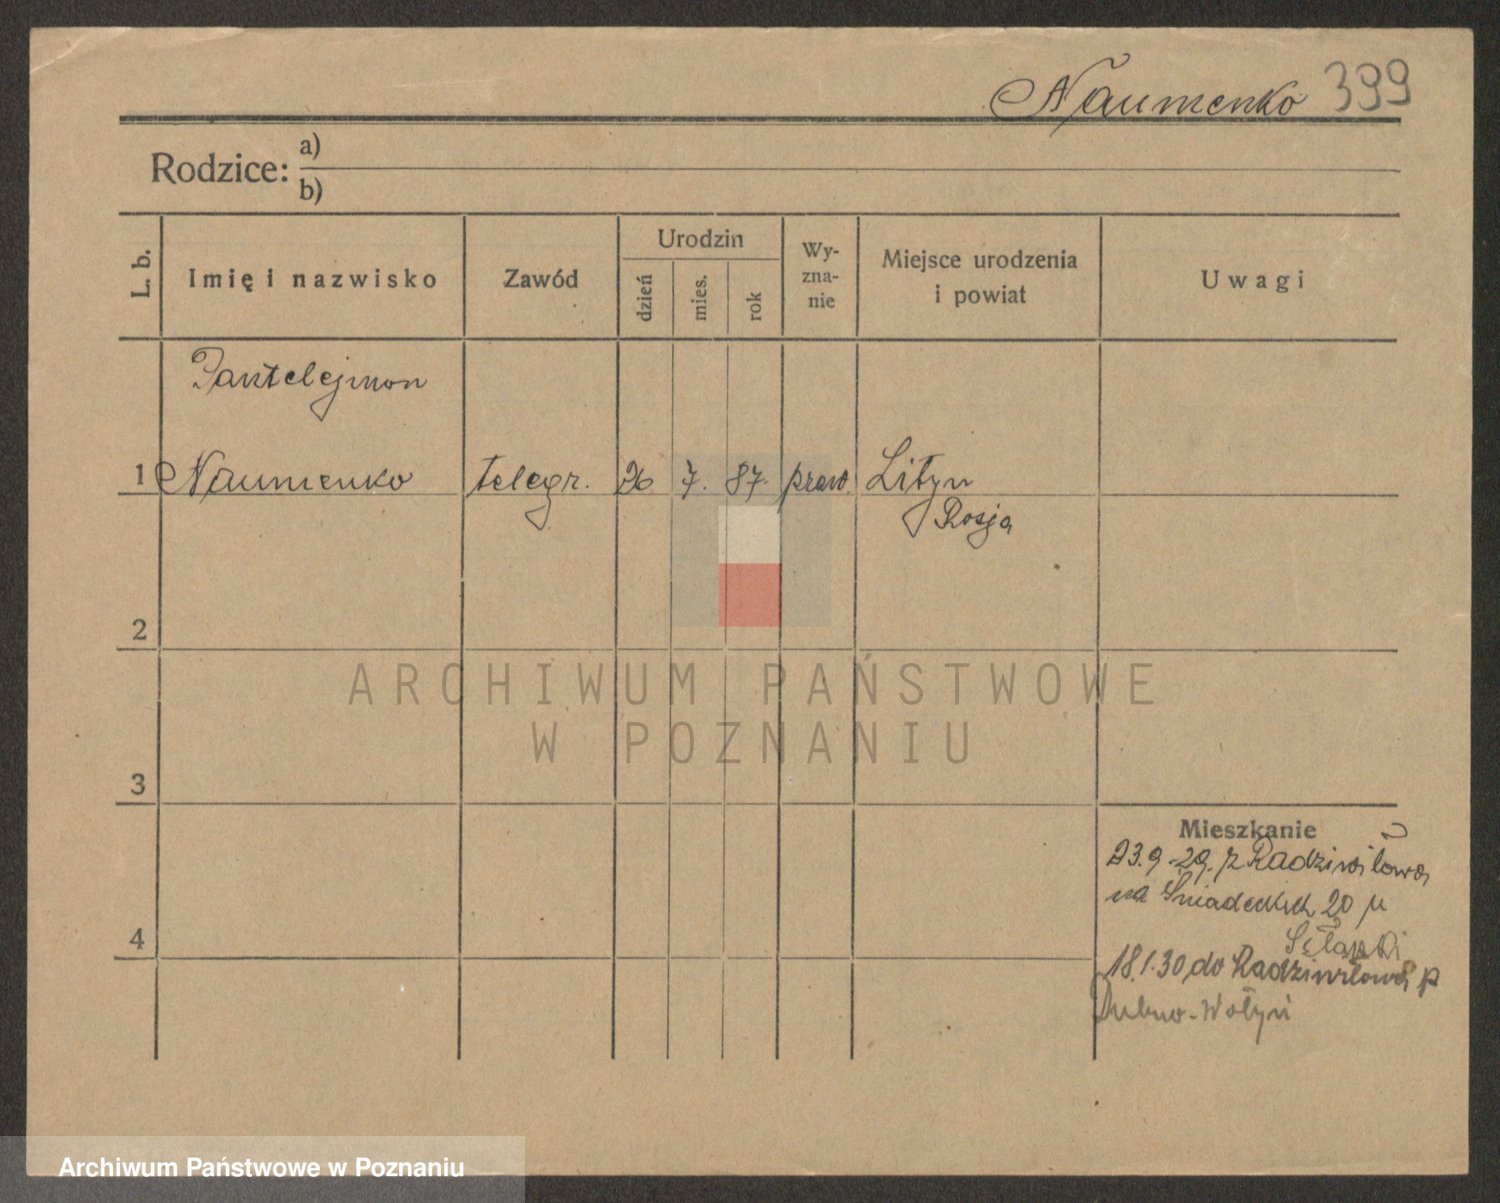 Naumenko 399
Rodzice: a)
b)
L. b.
Imię i nazwisko
Zawód
Urodzin
dzień
mies.
rok
Wy-
zna-
nie
Miejsce urodzenia
i powiat
Uwagi
Pantelejmon
1 Naumenko telegr. 26 7. 87. praw. Lityn
Rosja
2
3
4
Mieszkanie
23.9.29. z Radziwiłowa
na Śniadeckich 20 u
18.1.30 do Radziwiłowa p
Dubno-Wołyń
ARCHIWUM PAŃSTWOWE
W POZNANIU
Archiwum Państwowe w Poznaniu